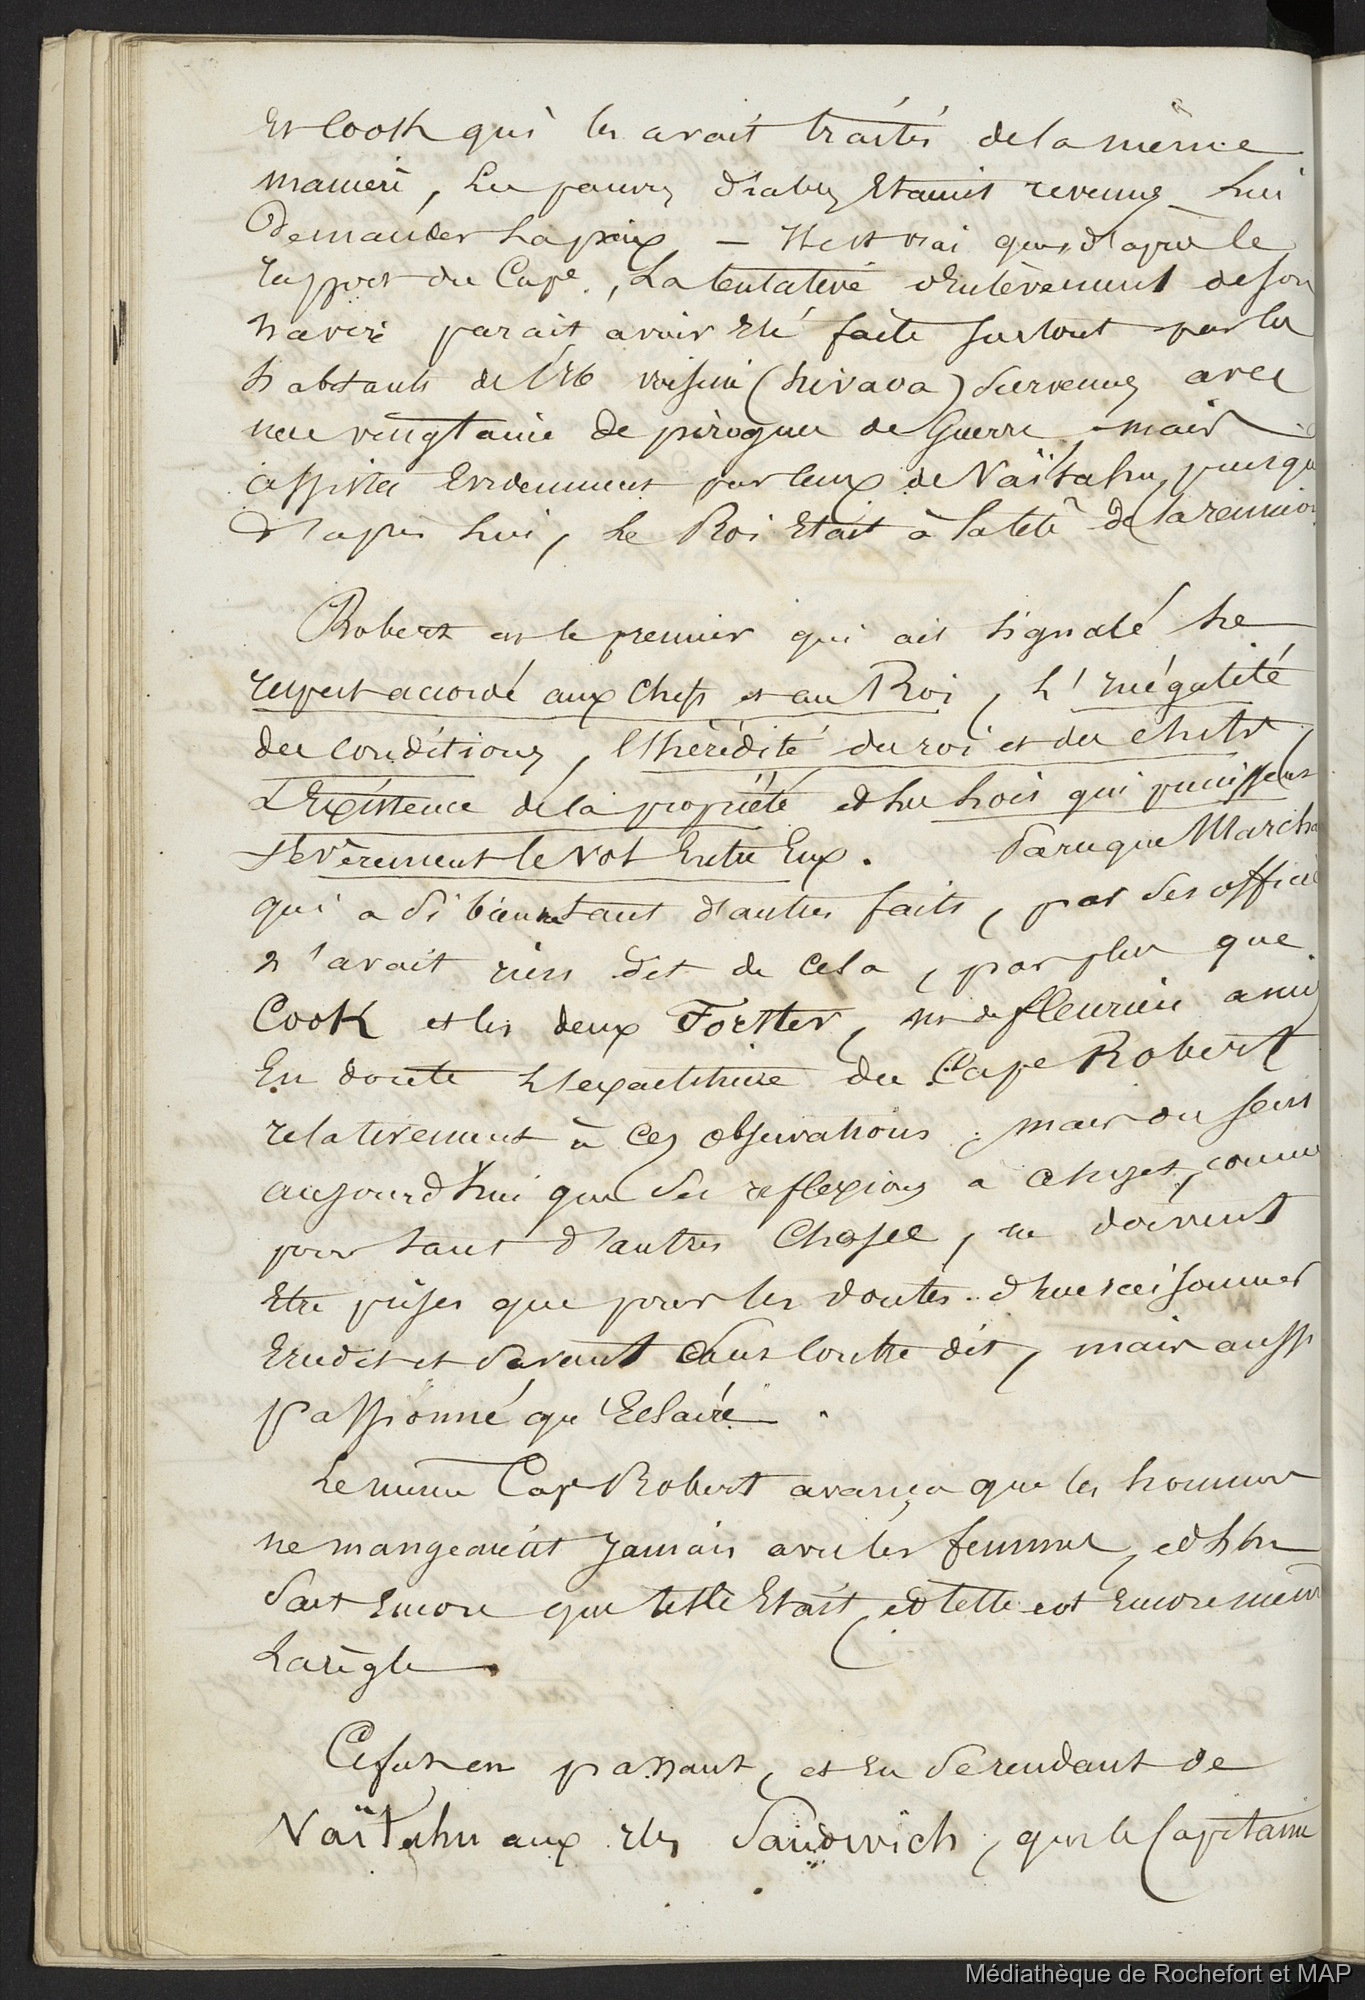 et Cook qui les avait traités de la même
manière, les pauvres diables étaient revenus lui
demander la paix — Il est vrai que, d'après le
rapport du Cape., la tentative d'enlèvement de son
navire parait avoir été faite surtout par les
habitants de l'île voisine (hivaoa) survenus avec
une vingtaine de pirogues de Guerre, mais
assistés évidemment par ceux de Vaïtahu, puisque
d'après lui, le Roi était à la tête de la réunion

Robert est le premier qui ait signalé le
respect accordé aux chefs et au Roi, l'inégalité
des conditions, l'hérédité du roi et des chefs,
l'existence de la propriété et les lois qui punissent
sévèrement le vol entre eux. Parceque Marchand
qui a si bien tant d'autres faits, par ses officiers
n'avait rien dit de cela, pas plus que
Cook et les deux Forster, mr de fleurieu a mis
en doute l'exactitude du Cape Robert
relativement à ces observations ; mais on sent
aujourd'hui que ses reflexions à ce sujet, comme
pour tant d'autres choses, ne doivent
être prises que pour les doutes d'un raisonneur
érudit et savant sans contre dit, mais aussi
passionné qu'éclairé.
Le même Cape Robert avança que les hommes
ne mangeaient jamais avec les femmes, et l'on
sait encore que telle était, et telle est encore même
la règle.

Ce fut en passant, et en se rendant de
Vaïtahu aux îles Sandwich, que le Capitaine
Médiathèque de Rochefort et MAP